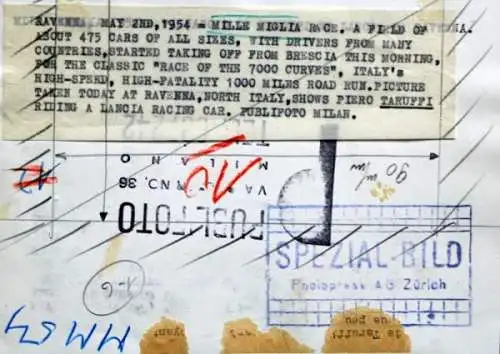 RAVENNA, MAY 2ND, 1954 - MILLE MIGLIA RACE. A FIELD OF
ABOUT 475 CARS OF ALL SIZES, WITH DRIVERS FROM MANY
COUNTRIES, STARTED TAKING OFF FROM BRESCIA THIS MORNING,
FOR THE CLASSIC "RACE OF THE 7000 CURVES", ITALY'S
HIGH-SPEED, HIGH-FATALITY 1000 MILES ROAD RUN. PICTURE
TAKEN TODAY AT RAVENNA, NORTH ITALY, SHOWS PIERO TARUFFI
RIDING A LANCIA RACING CAR. PUBLIFOTO MILAN.
90 m/m
MILANO
36
PUBLIFOTO
SPEZIAL-BILD
Photopress AG Zürich
1-6
MM 54
de Taruff